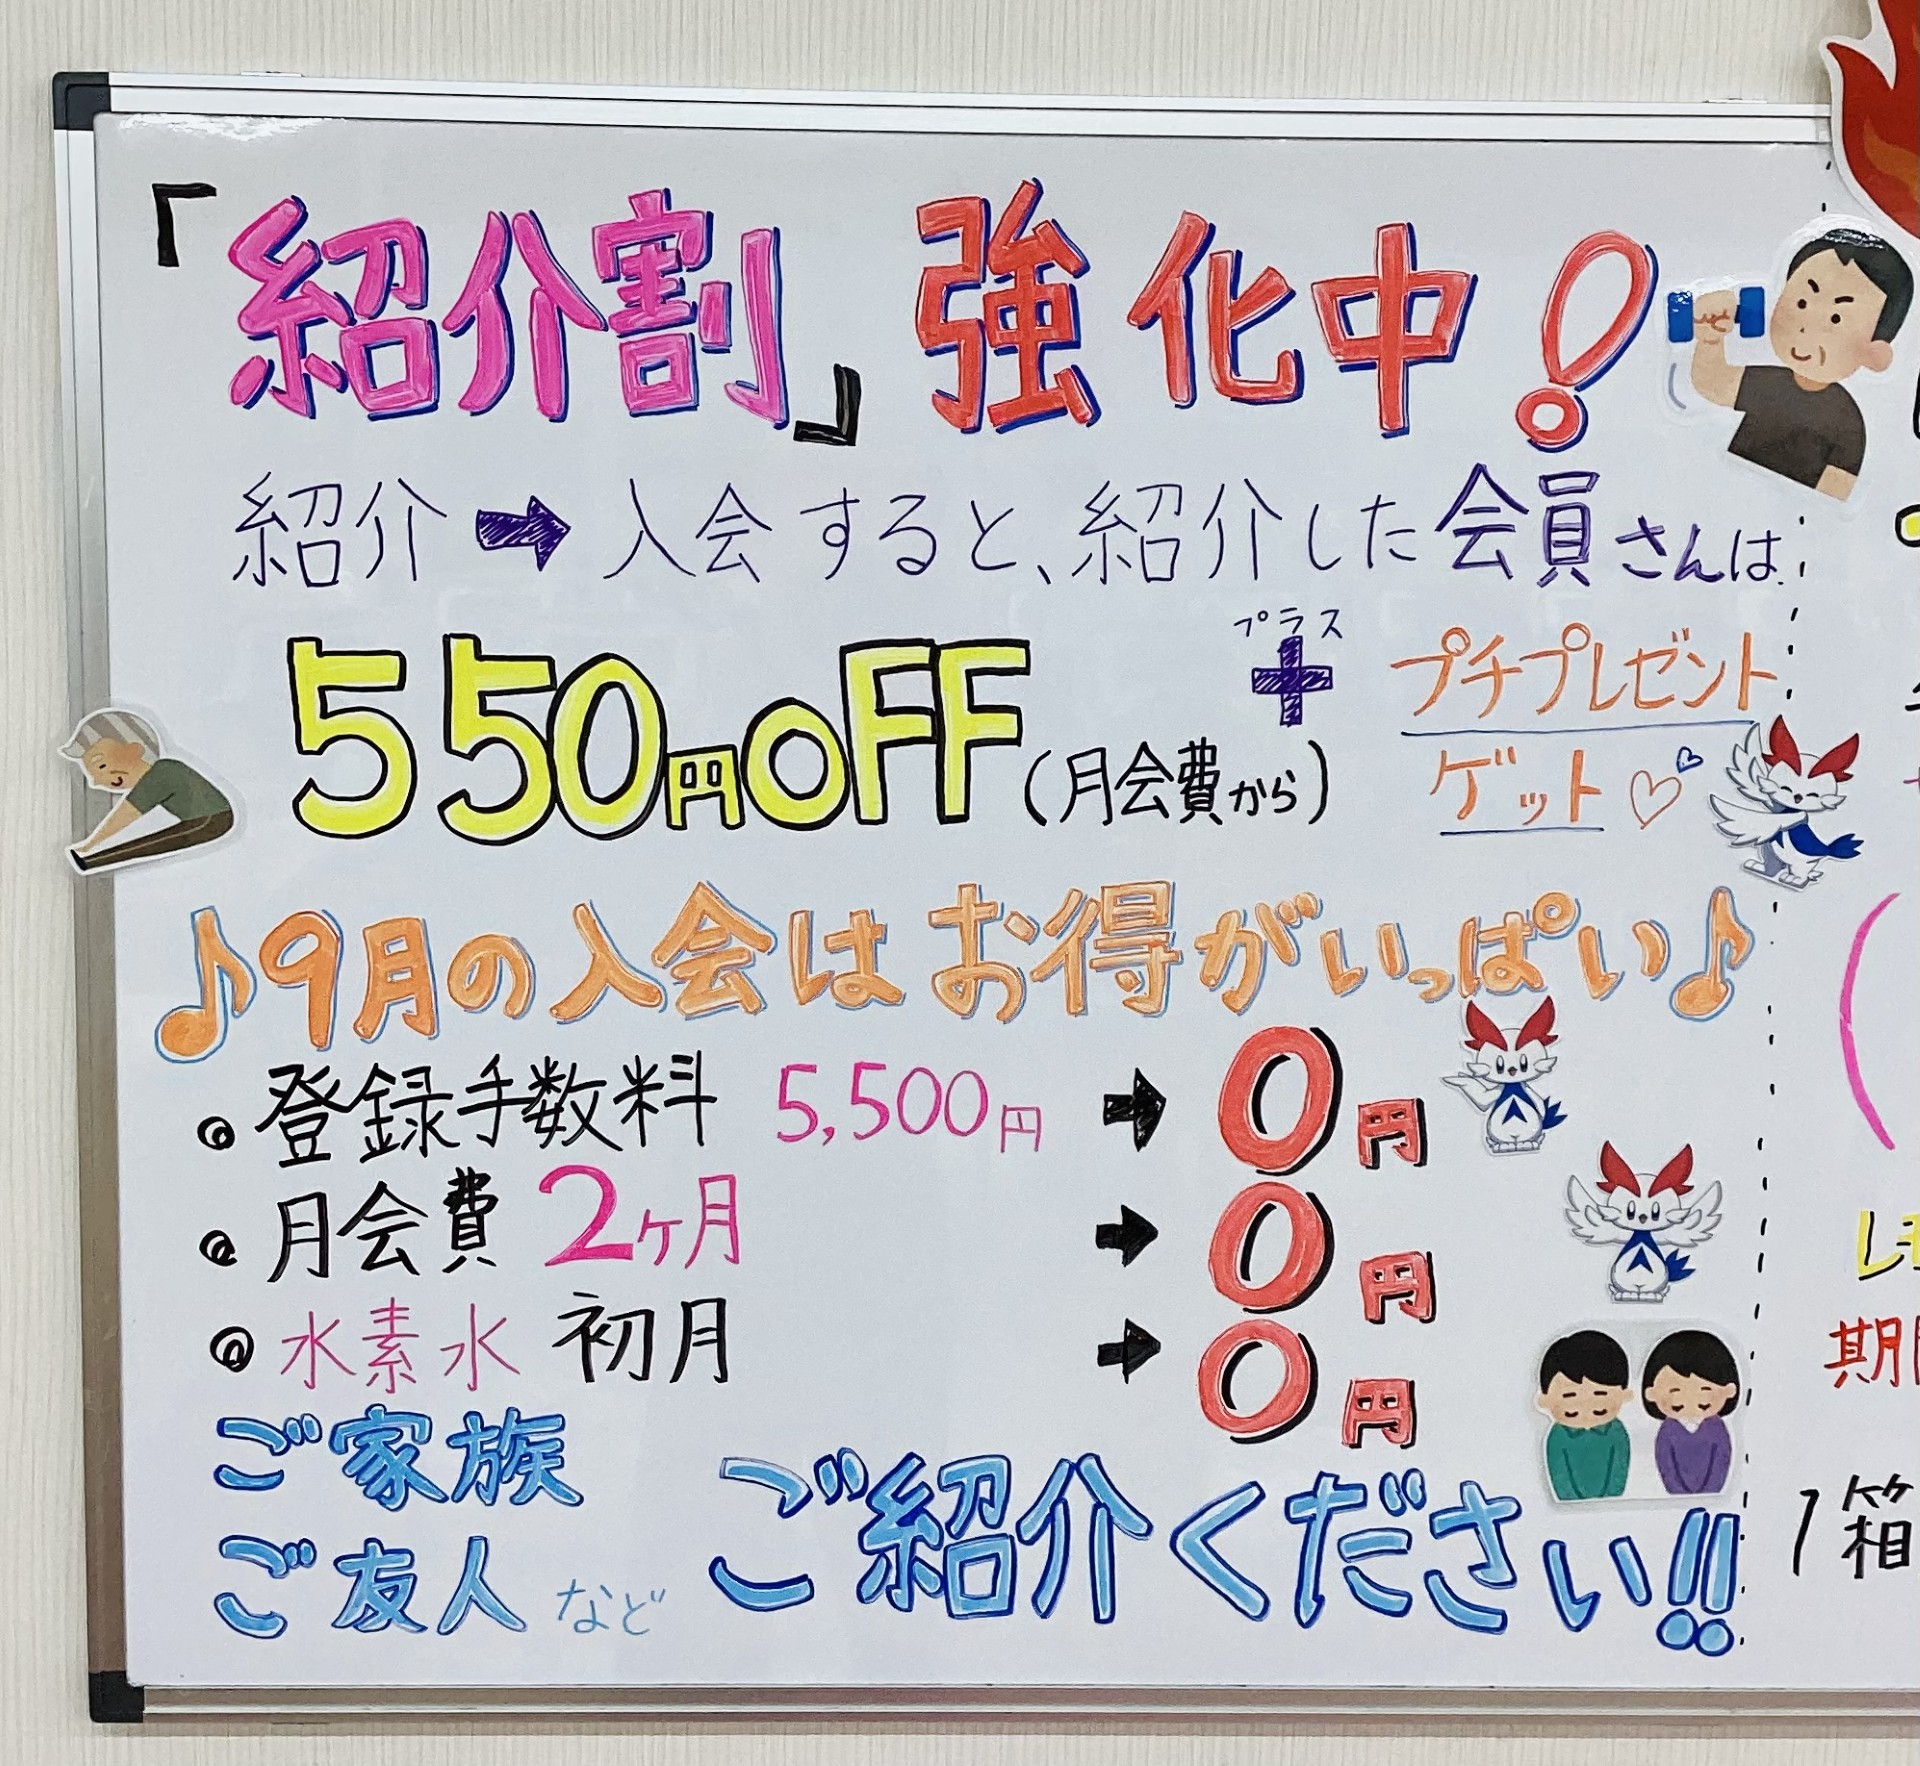 「紹介割」強化中!
紹介➡入会すると、紹介した会員さんは
プラス
550円OFF(月会費から) ✚ プチプレゼント
ゲット♡♡
♪9月の入会はお得がいっぱい♪
◎登録手数料 5,500円 ➡ 0円
◎月会費 2ヶ月 ➡ 0円
◎水素水 初月 ➡ 0円
ご家族
ご友人など ご紹介ください!!
期
1箱